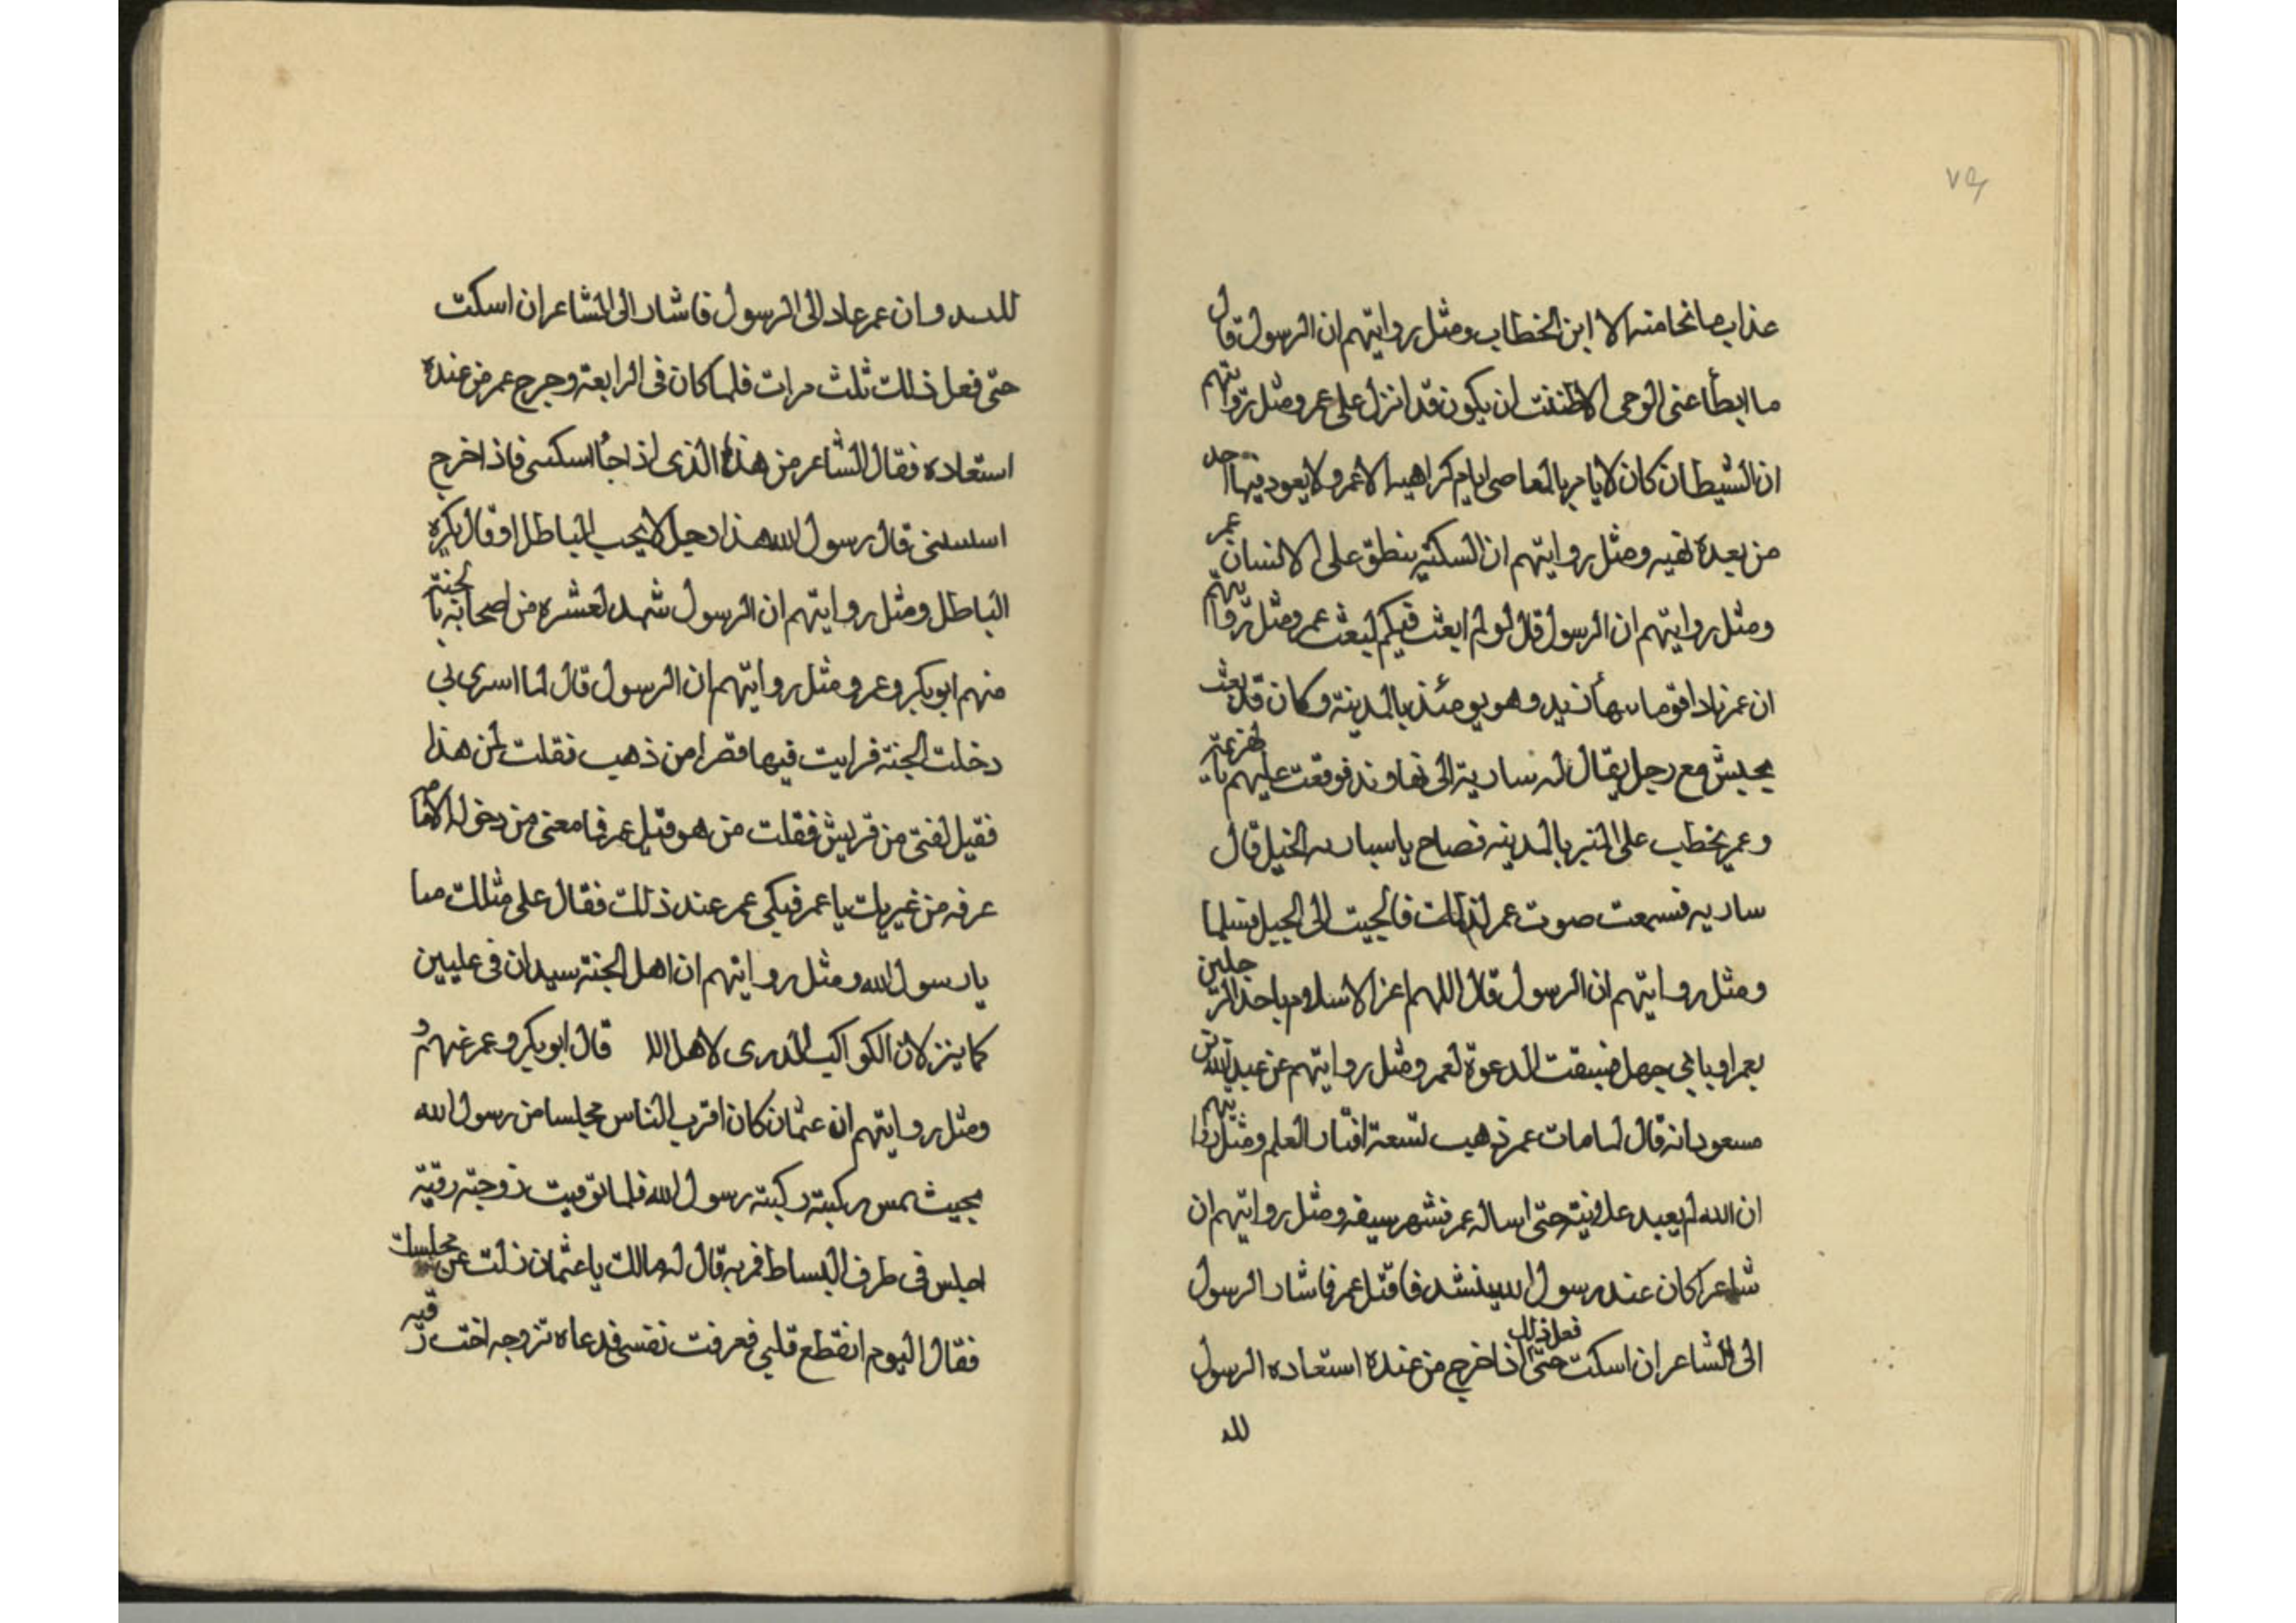 ٧٩
عذاب ما نجا منه الا ابن الخطاب ومثل روايتهم ان الرسول قال
ما ابطأ عنى الوحى الا ظننت ان يكون قد انزل على عمر ومثل روايتهم
ان الشيطان كان لا يامر بالمعاصى ايام كراهيه لا عمر ولا يعود فيها احد
من بعده نفيه ومثل روايتهم ان السكينه ينطق على الانسان عمر
ومثل روايتهم ان الرسول قال لو لم ابعث فيكم لبعث عمر ومثل روايتهم
ان عمر نادا قوما بنهاوند وهو يومئذ بالمدينة وكان قد بعث
بجيش مع رجل يقال له سارية الى نهاوند فوقعت عليهم الهزيمة
وعمر يخطب على المنبر بالمدينه فصاح يا ساريه الخيل قال
ساريه فسمعت صوت عمر لذلك فالجيت الى الجبل فسلما
ومثل روايتهم ان الرسول قال اللهم اعز الاسلام باحد الرجلين
بعمر او بابى جهل فسبقت الدعوة لعمر ومثل روايتهم عن عبد الله بن
مسعود انه قال لما مات عمر ذهب تسعة اعشار العلم ومثل روايتهم
ان الله لم يعبد علانية حتى اساله عمر فشهر سيفه ومثل روايتهم ان
شاعرا كان عند رسول الله ينشد فاقبل عمر فاشار الرسول
الى الشاعر ان اسكت فعل ذلك حتى اذا خرج من عنده استعاده الرسول
لله
وان عمر عاد الى الرسول فاشار الى الشاعر ان اسكت
حتى فعل ذلك ثلث مرات فلما كان فى الرابعة وخرج عمر من عنده
استعاده فقال الشاعر من هذا الذى اذا جاء اسكتنى فاذا خرج
قال رسول الله هذا رجل لا يحب الباطل او قال يكره
الباطل ومثل روايتهم ان الرسول شهد لعشرة من اصحابه بالجنة
منهم ابو بكر وعمر ومثل روايتهم ان الرسول قال لما اسرى بى
دخلت الجنة فرايت فيها قصرا من ذهب فقلت لمن هذا
فقيل لفتى من قريش فقلت من هو قيل عمر فما معنى من دخوله الا ما
عرفه من غيرتك يا عمر فبكى عمر عند ذلك فقال على مثلك
يا رسول الله ومثل روايتهم ان اهل الجنة سيدان فى عليين
كما ينزلان الكواكب الدرى لاهل قال ابو بكر وعمر منهم
ومثل روايتهم ان عثمان كان اقرب الناس مجلسا من رسول الله
بحيث تمس ركبته ركبته رسول الله فلما توفيت زوجته رقية
اجلس فى طرف البساط فمر به قال له مالك يا عثمان زلت عن مجلسك
فقال اليوم انقطع قلبى فعرفت نفسى فدعاه تزوجه اخت رقيه